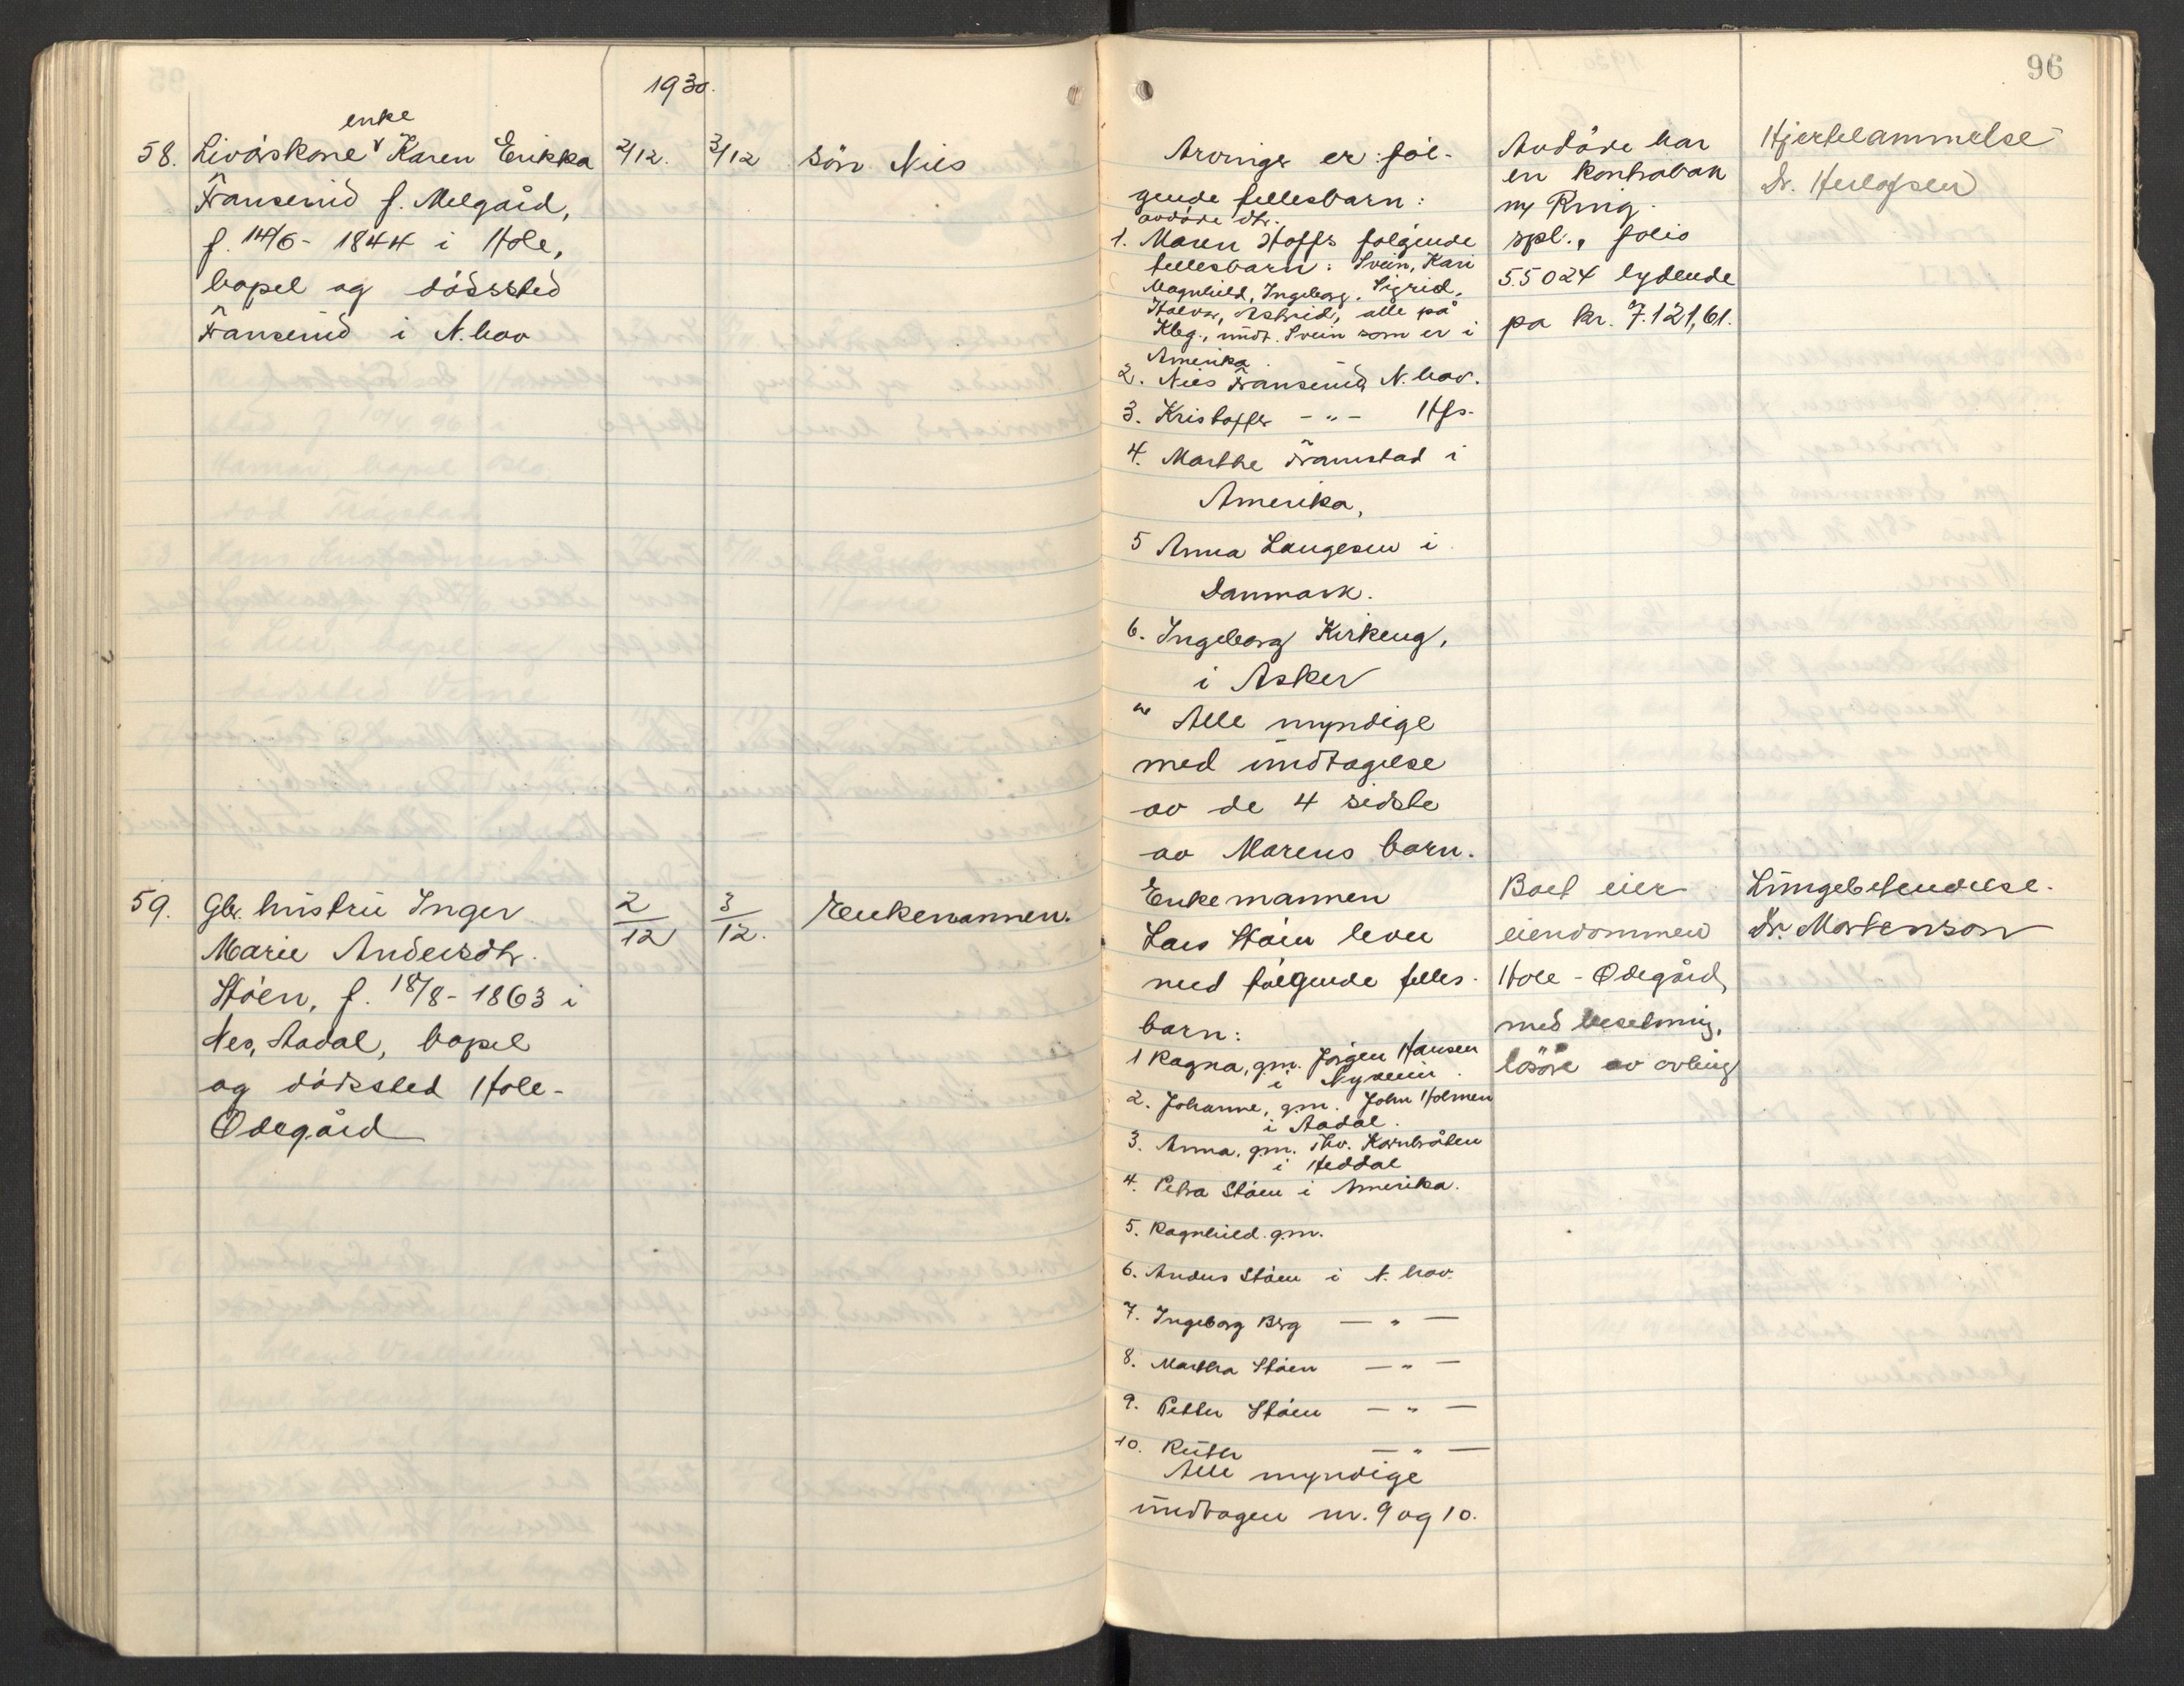 1930.
96
enke
58. Livørskone v Karen Erikka
Franserud f. Melgård,
f. 14/6 - 1844 i Hole,
bopel og dödssted
Franserud i N.hov
2/12.
3/12
Sön Nils
Arvinger er föl-
gende fellesbarn:
avdöde dtr.
1. Maren Hoffs folgende
fellesbarn: Svein, Kari
Magnhild, Ingeborg, Sigrid,
Halvor, Astrid, alle på
Kleg., undt. Svein som er i
Amerika.
2. Nils Franserud N.hov.
3. Kristoffer - " - Hfs.
4. Marthe Framstad i
Amerika,
5 Anna Langesen i
Danmark.
6. Ingeborg Kirkeng,
i Asker
" Alle myndige
med undtagelse
av de 4 sidste
av Marens barn.
Avdöde har
en kontrabok
m/ Ring.
spb., folio
55024 lydende
på kr. 7.121,61.
Hjertelammelse
Dr. Herlofsen
59. Gbr. hustru Inger
Marie Andersdtr.
Stöen, f. 18/8 - 1863 i
Nes, Aadal, bopel
og dödssted Hole-
Ödegård
2/12
3/12.
Enkemannen.
Enkemannen
Lars Stöen lever
med følgende felles-
barn:
1 Ragna, gm. Jörgen Hansen
i
2. Johanne, gm. John Holmen
i Aadal.
3. Anna, gm. Thv. Kornbråten
i Heddal
4. Petra Stöen i Amerika.
5. Ragnhild gm.
6. Anders Stöen i N. hov.
7. Ingeborg Berg — " —
8. Martha Stöen — " —
9. Petter Stöen — " —
10. Ruth — " —
Alle myndige
undtagen nr. 9 og 10.
Boet eier
eiendommen
Hole - Ödegård
med besetning,
lösöre av avling
Lungebetendelse.
Dr. Mortenson